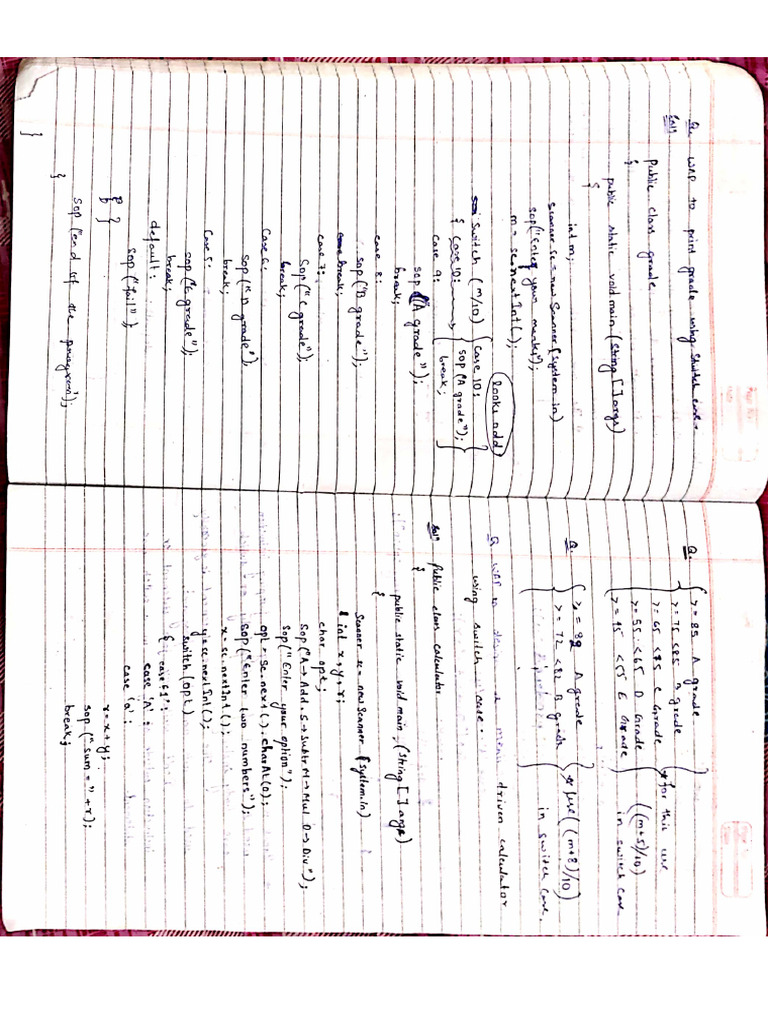 Q. WAP to print grade using Switch case.
Soln Public class grade
{
public static void main (String [ ] args)
{
int m;
Scanner sc = new Scanner (System.in)
sop("Enter your marks");
m = sc.nextInt ( );
Switch (m/10)
{ case 10: →
case 10:
sop ("A grade");
break;
looks odd
case 9:
sop ("A grade");
break;
case 8:
sop ("B grade");
break;
case 7:
sop ("C grade");
break;
Case 6:
sop ("D grade");
break;
Case 5:
sop ("E grade");
break;
default:
sop ("fail");
}
}
sop ("end of the program");
}
}
Q. >= 85 A grade
>= 75 <85 B grade
>= 65 <75 C Grade
>= 55 <65 D Grade
>= 45 <55 E Grade
* for this use
((m+5)/10)
in switch case
Q. >= 82 A grade
>= 72 <82 B grade
* for ((m+8)/10)
in switch case.
Q. WAP to menu driven calculator
using switch case.
Soln Public class calculator
{
public static void main (String [ ] args)
{
Scanner sc = new Scanner (System.in)
int x, y, r;
char opt;
Sop ("A→Add. S→Subtr. M→Mul D→Div");
Sop ("Enter your option");
opt = sc.next ( ). charAt (0);
sop ("Enter two numbers");
x = sc.nextInt ( );
y = sc.nextInt ( );
switch (opt)
{
case 'A':
case 'a':
r = x+y;
sop ("sum = " + r);
break;